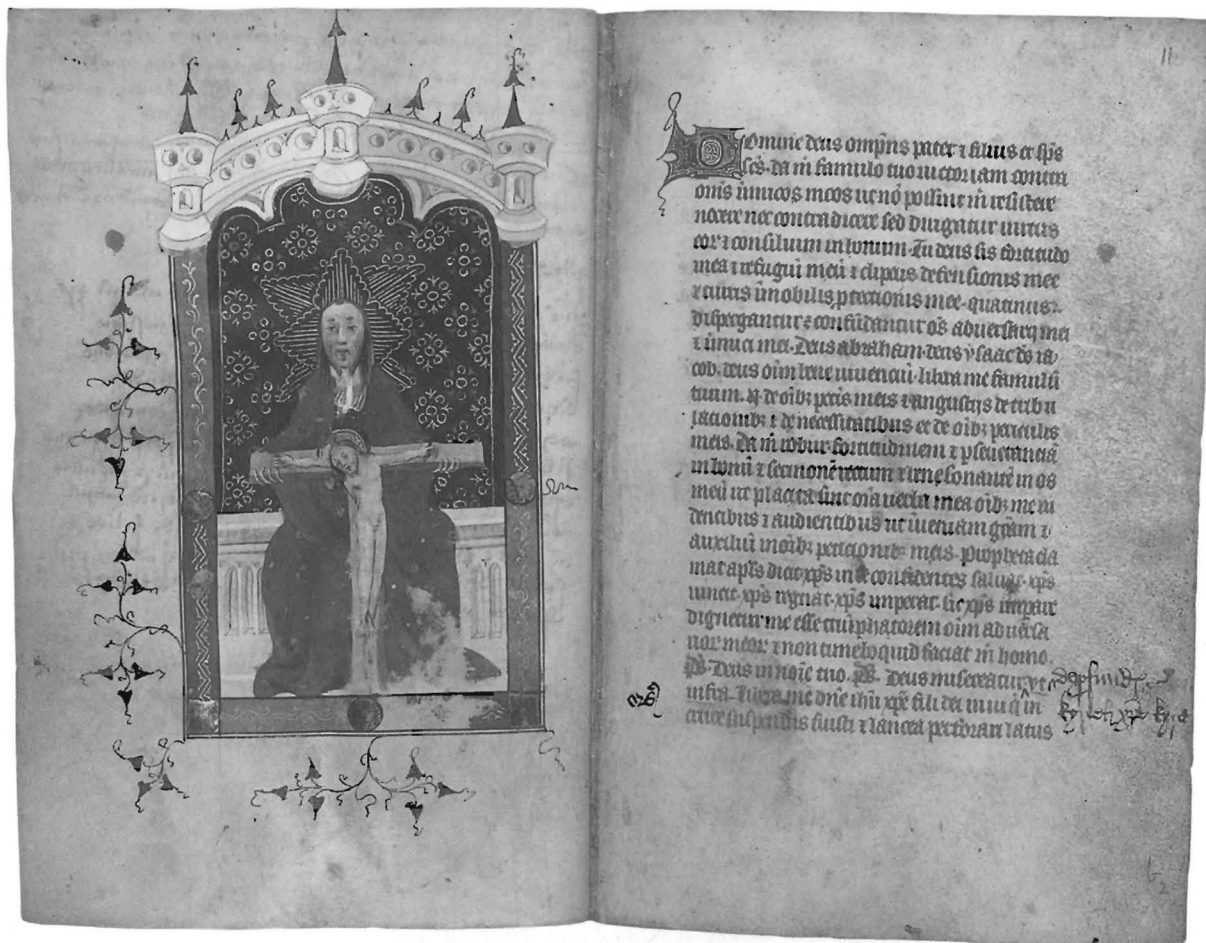 11
Domine deus omp̄ns pater ⁊ filius et sp̄s
sc̄s. da m̄ famulo tuo uictoriam contra
om̄is īimicos meos ut nō possint m̄ resistere
nocere nec contradicere sed dirigatur uirtus
eoꝝ ⁊ consilium in bonum. Tu deus sis fortitudo
mea ⁊ refugiū meū ⁊ clipeus defensionis mee
⁊ turris īmobilis ꝓtectionis mee. quatinus
dispergantur ⁊ confūdantur oēs aduersarij mei
⁊ īimici mei. Deus abraham. deus ysaac. ds̄ ia
cob. deus oīm bene uiuenciū. libera me famulū
tuum. N de oīb; pc̄tis meis ⁊ angustijs de tribu
lacionib; ⁊ de necessitatibus et de oīb; periculis
meis. Da m̄ robur fortitudinem ⁊ ꝑseuerantiā
in bonū ⁊ sermonē rectum ⁊ bn̄e sonantē in os
meū ut placita sint oīa uerba mea oīb; me ui
dentibus ⁊ audientibus ut īueniam gr̄am ⁊
auxiliū in oīb; peticionib; meis. Propheta cla
mat apl̄s dicit xp̄s in se confidentes saluat. xp̄s
uincit. xp̄s regnat. xp̄s imperat. sic xp̄s impare
dignetur me esse triūphatorem oīm aduersa
rioꝝ meoꝝ ⁊ non timebo quid faciat m̄ homo.
ps̄. Deus in noīe tuo. ps̄. Deus misereatur. vt
infra. Libera me dn̄e ih̄u xp̄e fili dei uiui q̄ in
kyrel xp̄e kyre
cruce suspensus fuisti ⁊ lancea perforari latus
b 2